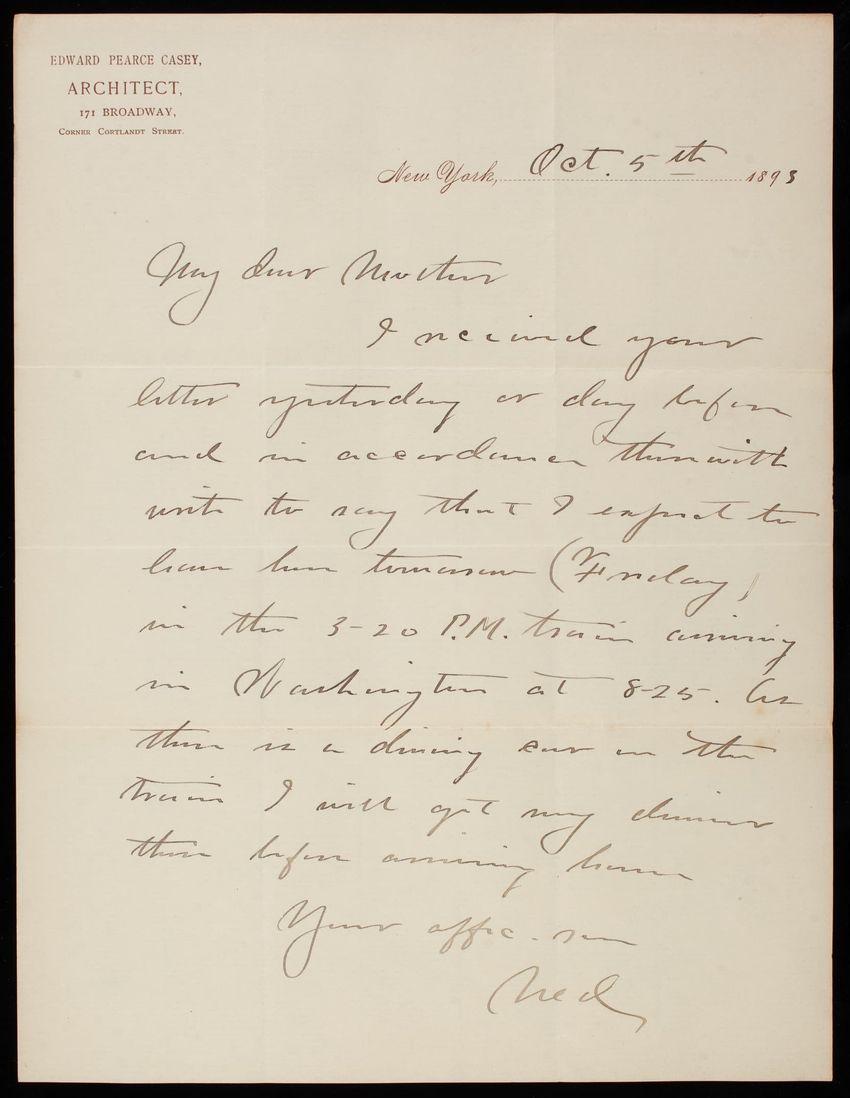 EDWARD PEARCE CASEY,
ARCHITECT,
171 BROADWAY,
CORNER CORTLANDT STREET.
New York, Oct. 5th 1893
My dear Mother
I received your
letter yesterday or day before
and in accordance therewith
write to say that I expect to
leave here tomorrow (Friday)
in the 3-20 P.M. train arriving
in Washington at 8-25. As
there is a dining car on the
train I will get my dinner
there before arriving home
Your affec. son
Ned